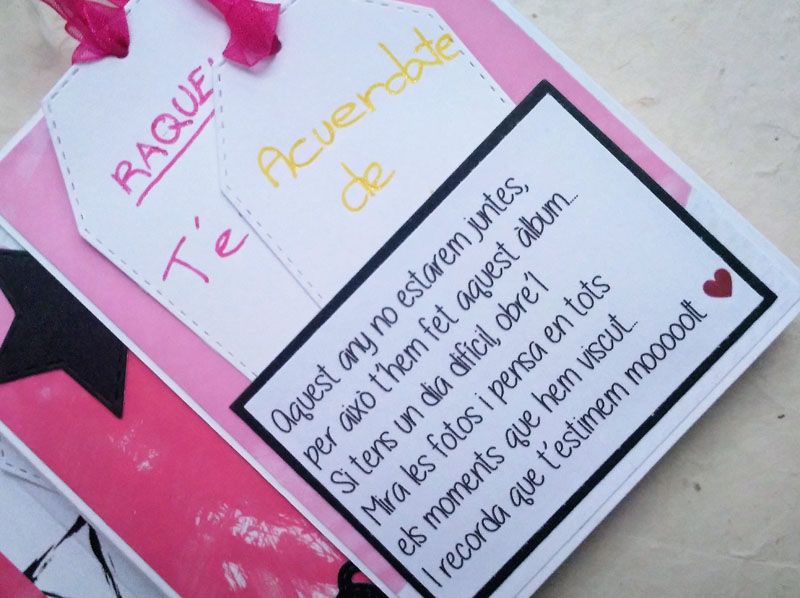 RAQUE
T'e
Acuerdate
de
Aquest any no estarem juntes,
per això t'hem fet aquest àlbum...
Si tens un dia difícil, obre'l
Mira les fotos i pensa en tots
els moments que hem viscut...
I recorda que t'estimem mooooolt